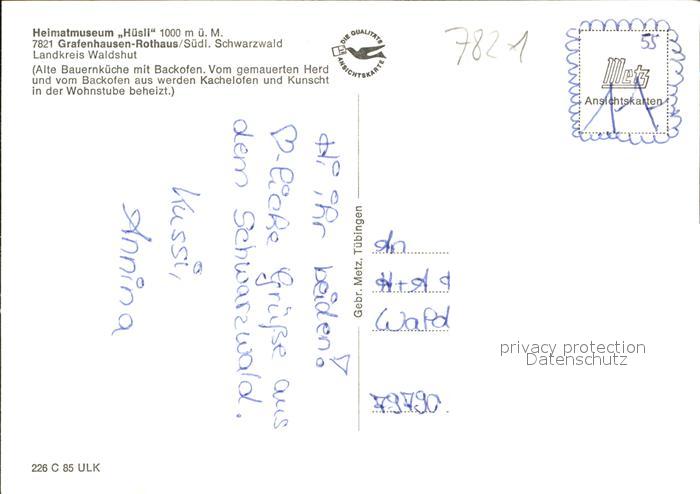 Heimatmuseum „Hüsli“ 1000 m ü. M.
7821 Grafenhausen-Rothaus/Südl. Schwarzwald
Landkreis Waldshut
(Alte Bauernküche mit Backofen. Vom gemauerten Herd
und vom Backofen aus werden Kachelofen und Kunscht
in der Wohnstube beheizt.)
DIE QUALITÄTS
ANSICHTSKARTE
7821
55
Metz
Ansichtskarten
Hi ihr beiden!
♡-liche Grüße aus
dem Schwarzwald.
Kussi,
Annina
Gebr. Metz, Tübingen
An
Wald
79790
privacy protection
Datenschutz
226 C 85 ULK